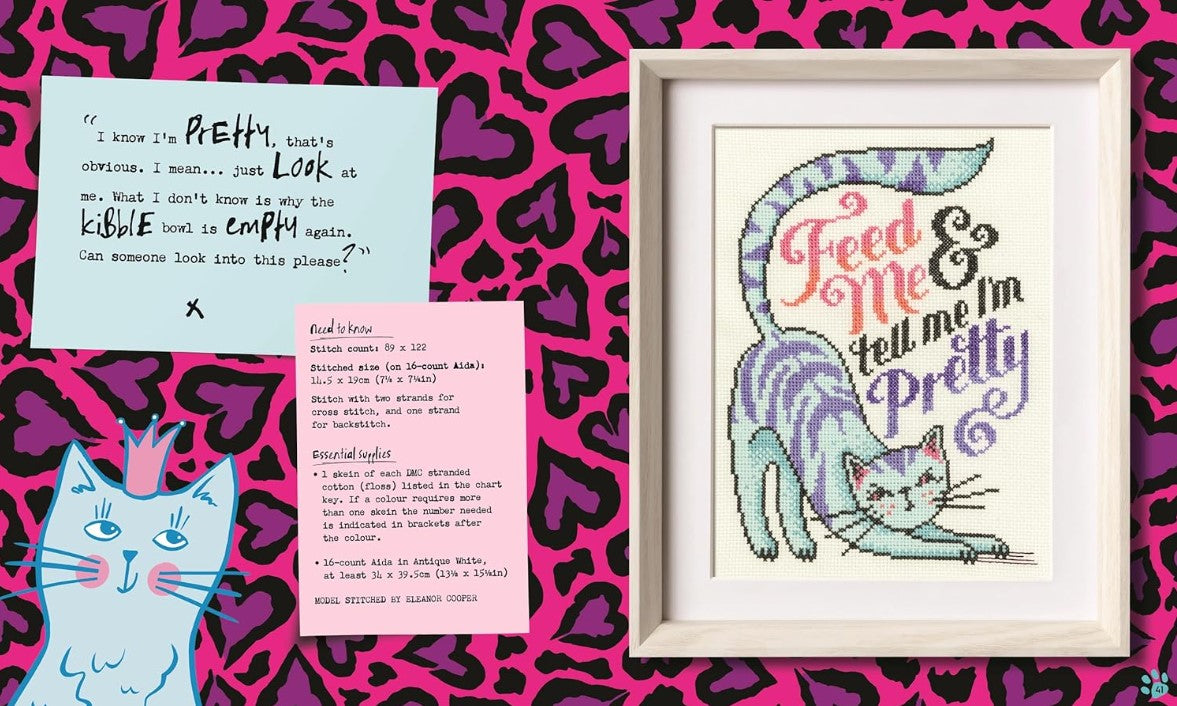 "I know I'm PrEtty, that's
obvious. I mean... just LOOK at
me. What I don't know is why the
kiBBlE bowl is EmPty again.
Can someone look into this please?"
x
Need to know
Stitch count: 89 x 122
Stitched size (on 16-count Aida):
14.5 x 19cm (7⅛ x 7¼in)
Stitch with two strands for
cross stitch, and one strand
for backstitch.
Essential supplies
• 1 skein of each DMC stranded
cotton (floss) listed in the chart
key. If a colour requires more
than one skein the number needed
is indicated in brackets after
the colour.
• 16-count Aida in Antique White,
at least 34 x 39.5cm
MODEL STITCHED BY ELEANOR COOPER
Feed
Me &
tell me I'm
Pretty
41